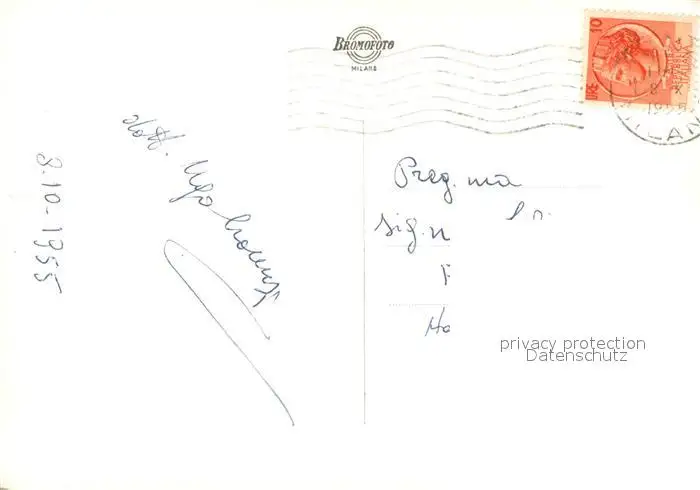 BROMOFOTO
MILANO
10
LIRE
REPUBBLICA
ITALIANA
8 X
1955
MILANO
8.10.1955
dott. Ugo
Preg.ma
Sig.
privacy protection
Datenschutz